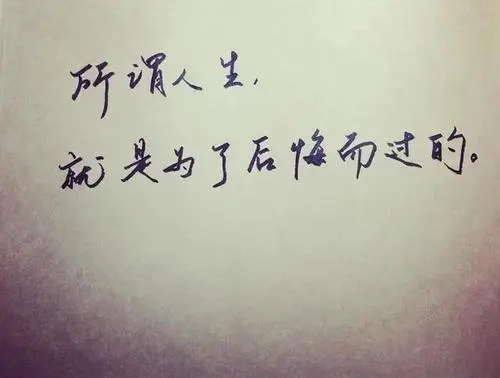 所谓人生,
就是为了后悔而过的。